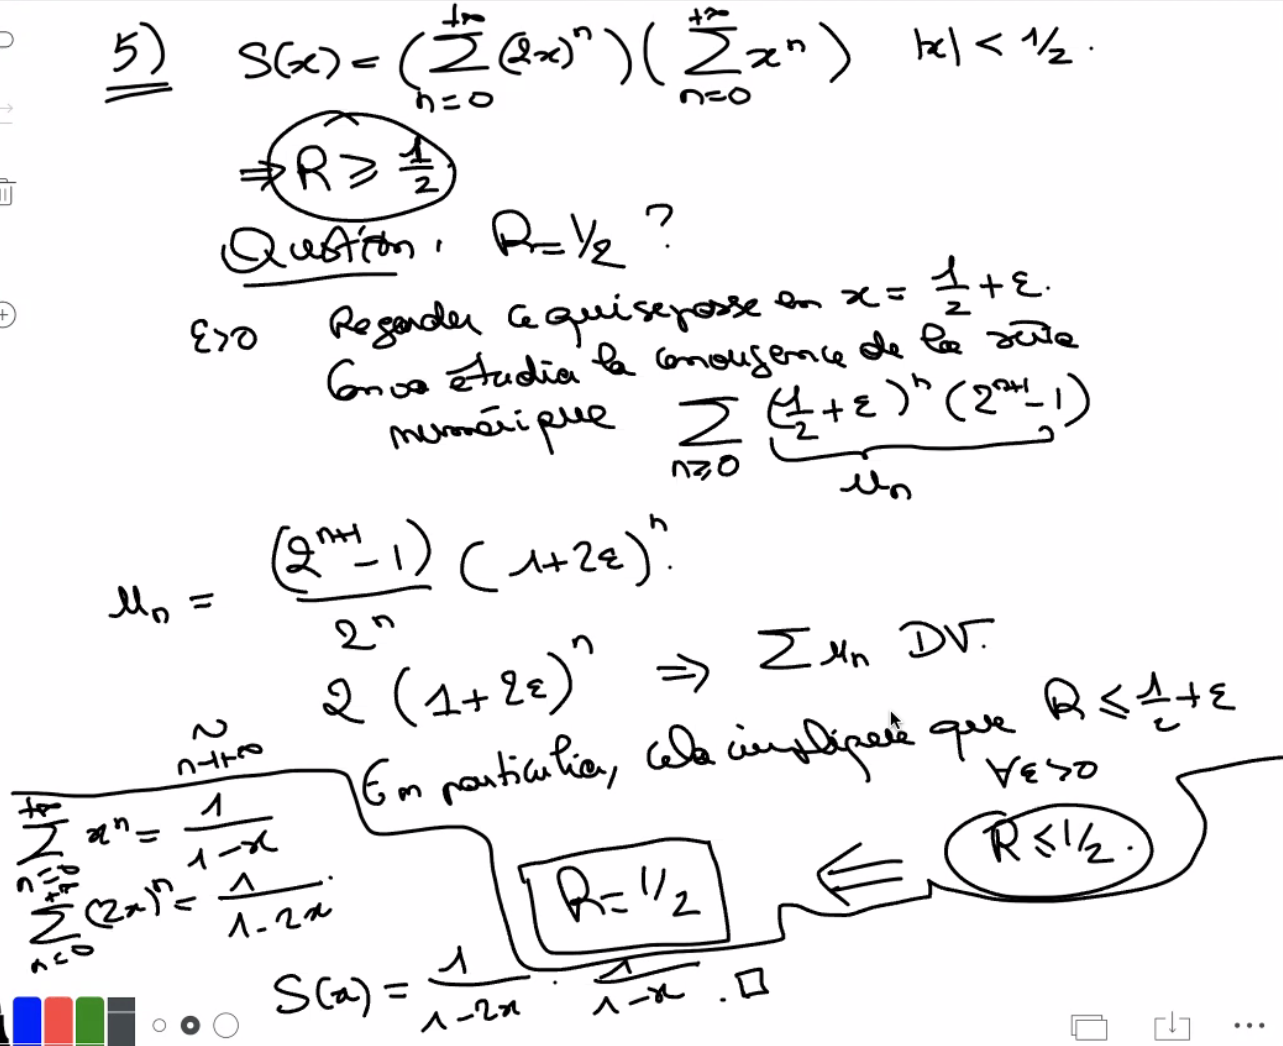 5) S(x) = (∑_{n=0}^{+∞} (2x)^n) (∑_{n=0}^{+∞} x^n) |x| < 1/2.
⇒ R ≥ 1/2
Question. R = 1/2 ?
ε>0 Regarder ce qui se passe en x = 1/2 + ε.
On va étudier la convergence de la série
numérique ∑_{n≥0} (1/2 + ε)^n (2^{n+1} - 1)
u_n
u_n = (2^{n+1} - 1)/2^n (1 + 2ε)^n.
~_{n→+∞} 2 (1 + 2ε)^n ⇒ ∑ u_n DV.
En particulier, cela implique que R ≤ 1/2 + ε
∀ε>0
R ≤ 1/2.
⇐
R = 1/2
∑_{n=0}^{+∞} x^n = 1/(1-x)
∑_{n=0}^{+∞} (2x)^n = 1/(1-2x).
S(x) = 1/(1-2x) · 1/(1-x) . □